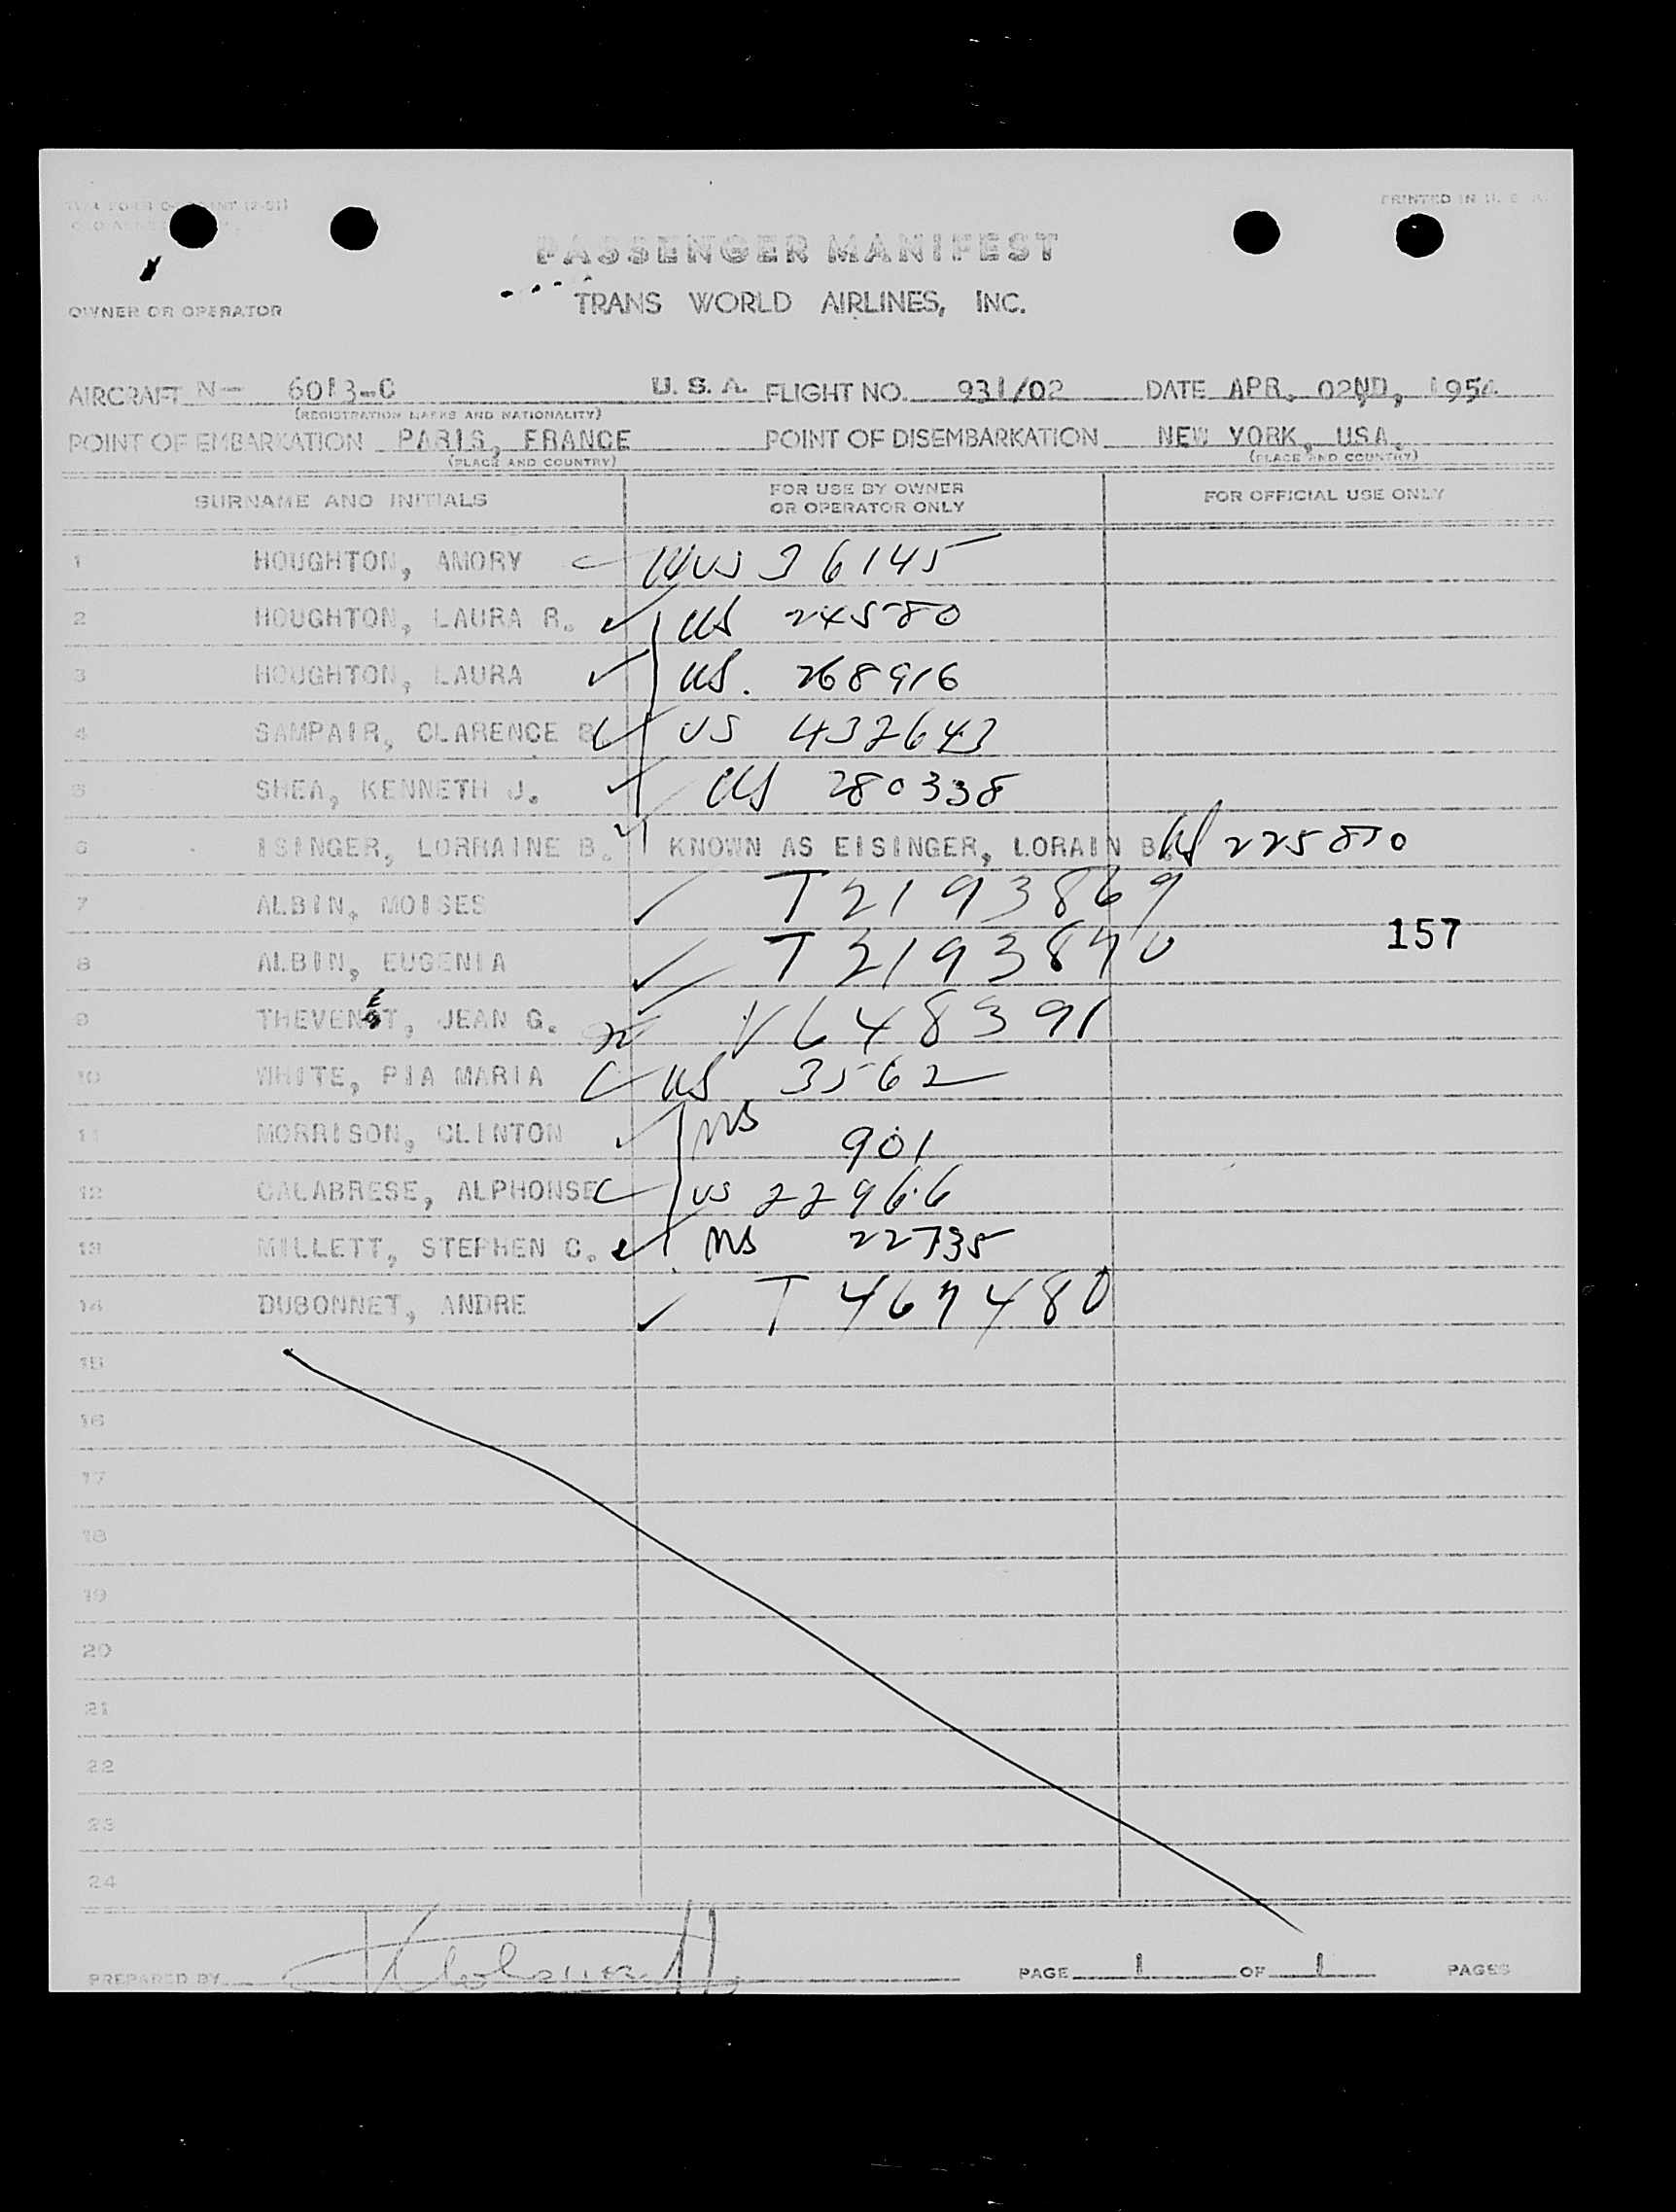 PRINTED IN U. S. A.
PASSENGER MANIFEST
TRANS WORLD AIRLINES, INC.
OWNER OR OPERATOR
AIRCRAFT N- 6013-C U. S. A. FLIGHT NO. 931/02 DATE APR. 02ND, 1954
(REGISTRATION MARKS AND NATIONALITY)
POINT OF EMBARKATION PARIS, FRANCE POINT OF DISEMBARKATION NEW YORK, USA.
(PLACE AND COUNTRY) (PLACE AND COUNTRY)
SURNAME AND INITIALS FOR USE BY OWNER OR OPERATOR ONLY FOR OFFICIAL USE ONLY
1 HOUGHTON, AMORY 36145
2 HOUGHTON, LAURA R. US 24580
3 HOUGHTON, LAURA US. 268916
4 SAMPAIR, CLARENCE B. US 432643
5 SHEA, KENNETH J. US 280338
6 ISINGER, LORRAINE B. KNOWN AS EISINGER, LORAIN B. US 225850
7 ALBIN, MOISES T 2193869
8 ALBIN, EUGENIA T 2193870
157
9 THEVENET, JEAN G. V648391
10 WHITE, PIA MARIA US 3562
11 MORRISON, CLINTON 901
12 CALABRESE, ALPHONSE US 22966
13 MILLETT, STEPHEN C. 22735
14 DUBONNET, ANDRE T 467480
15
16
17
18
19
20
21
22
23
24
PREPARED BY PAGE 1 OF 1 PAGES